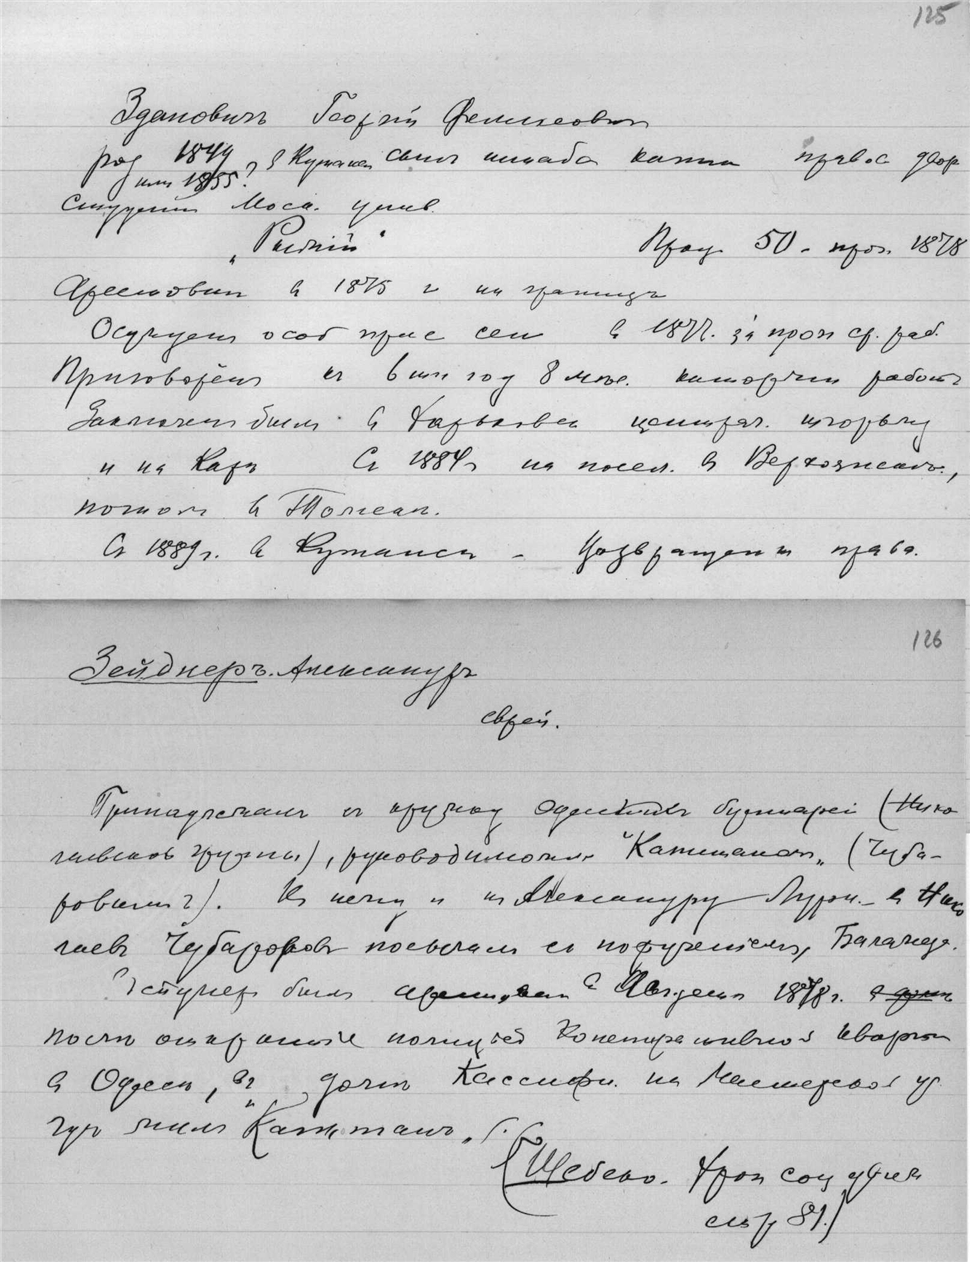 125
Здановичъ Георгій Феликсовичъ
род 1844 в Кутаисѣ сынъ штабс капит. правос двор
или 1855?
Студентъ Моск. унив.
„Рыжій“ Проц. 50 - проп. 1878
Арестованъ въ 1875 г на границѣ
Осужденъ особ прис сен въ 1877г. за проп ср. раб.
Приговоренъ къ 6 или год 8 мѣс. каторжн работъ
Заключенъ былъ въ Харьковск централ. тюрьму
и на Карѣ Съ 1884г на посел. въ Верхоянскѣ.,
потомъ въ Томскѣ.
Съ 1889 г. въ Кутаисѣ - Возвращены права.
126
Зейднеръ. Александръ
еврей.
Принадлежалъ къ кружку Одесскихъ бунтарей (Нико
лаевской группы), руководимой „Капитаномъ„ (Чуба-
ровымъ). Къ нему и къ Александру Лури - въ Нико
лаевъ Чубаровъ посылалъ съ порученіемъ
Зейднеръ былъ арестованъ въ Августѣ 1878 г.
послѣ открытія полиціей конспиративной квартиры
въ Одессѣ, въ домѣ на Мастерской ул
гдѣ жилъ „Капитанъ„
(Шебеко. Хрон соц движ
стр 81.)